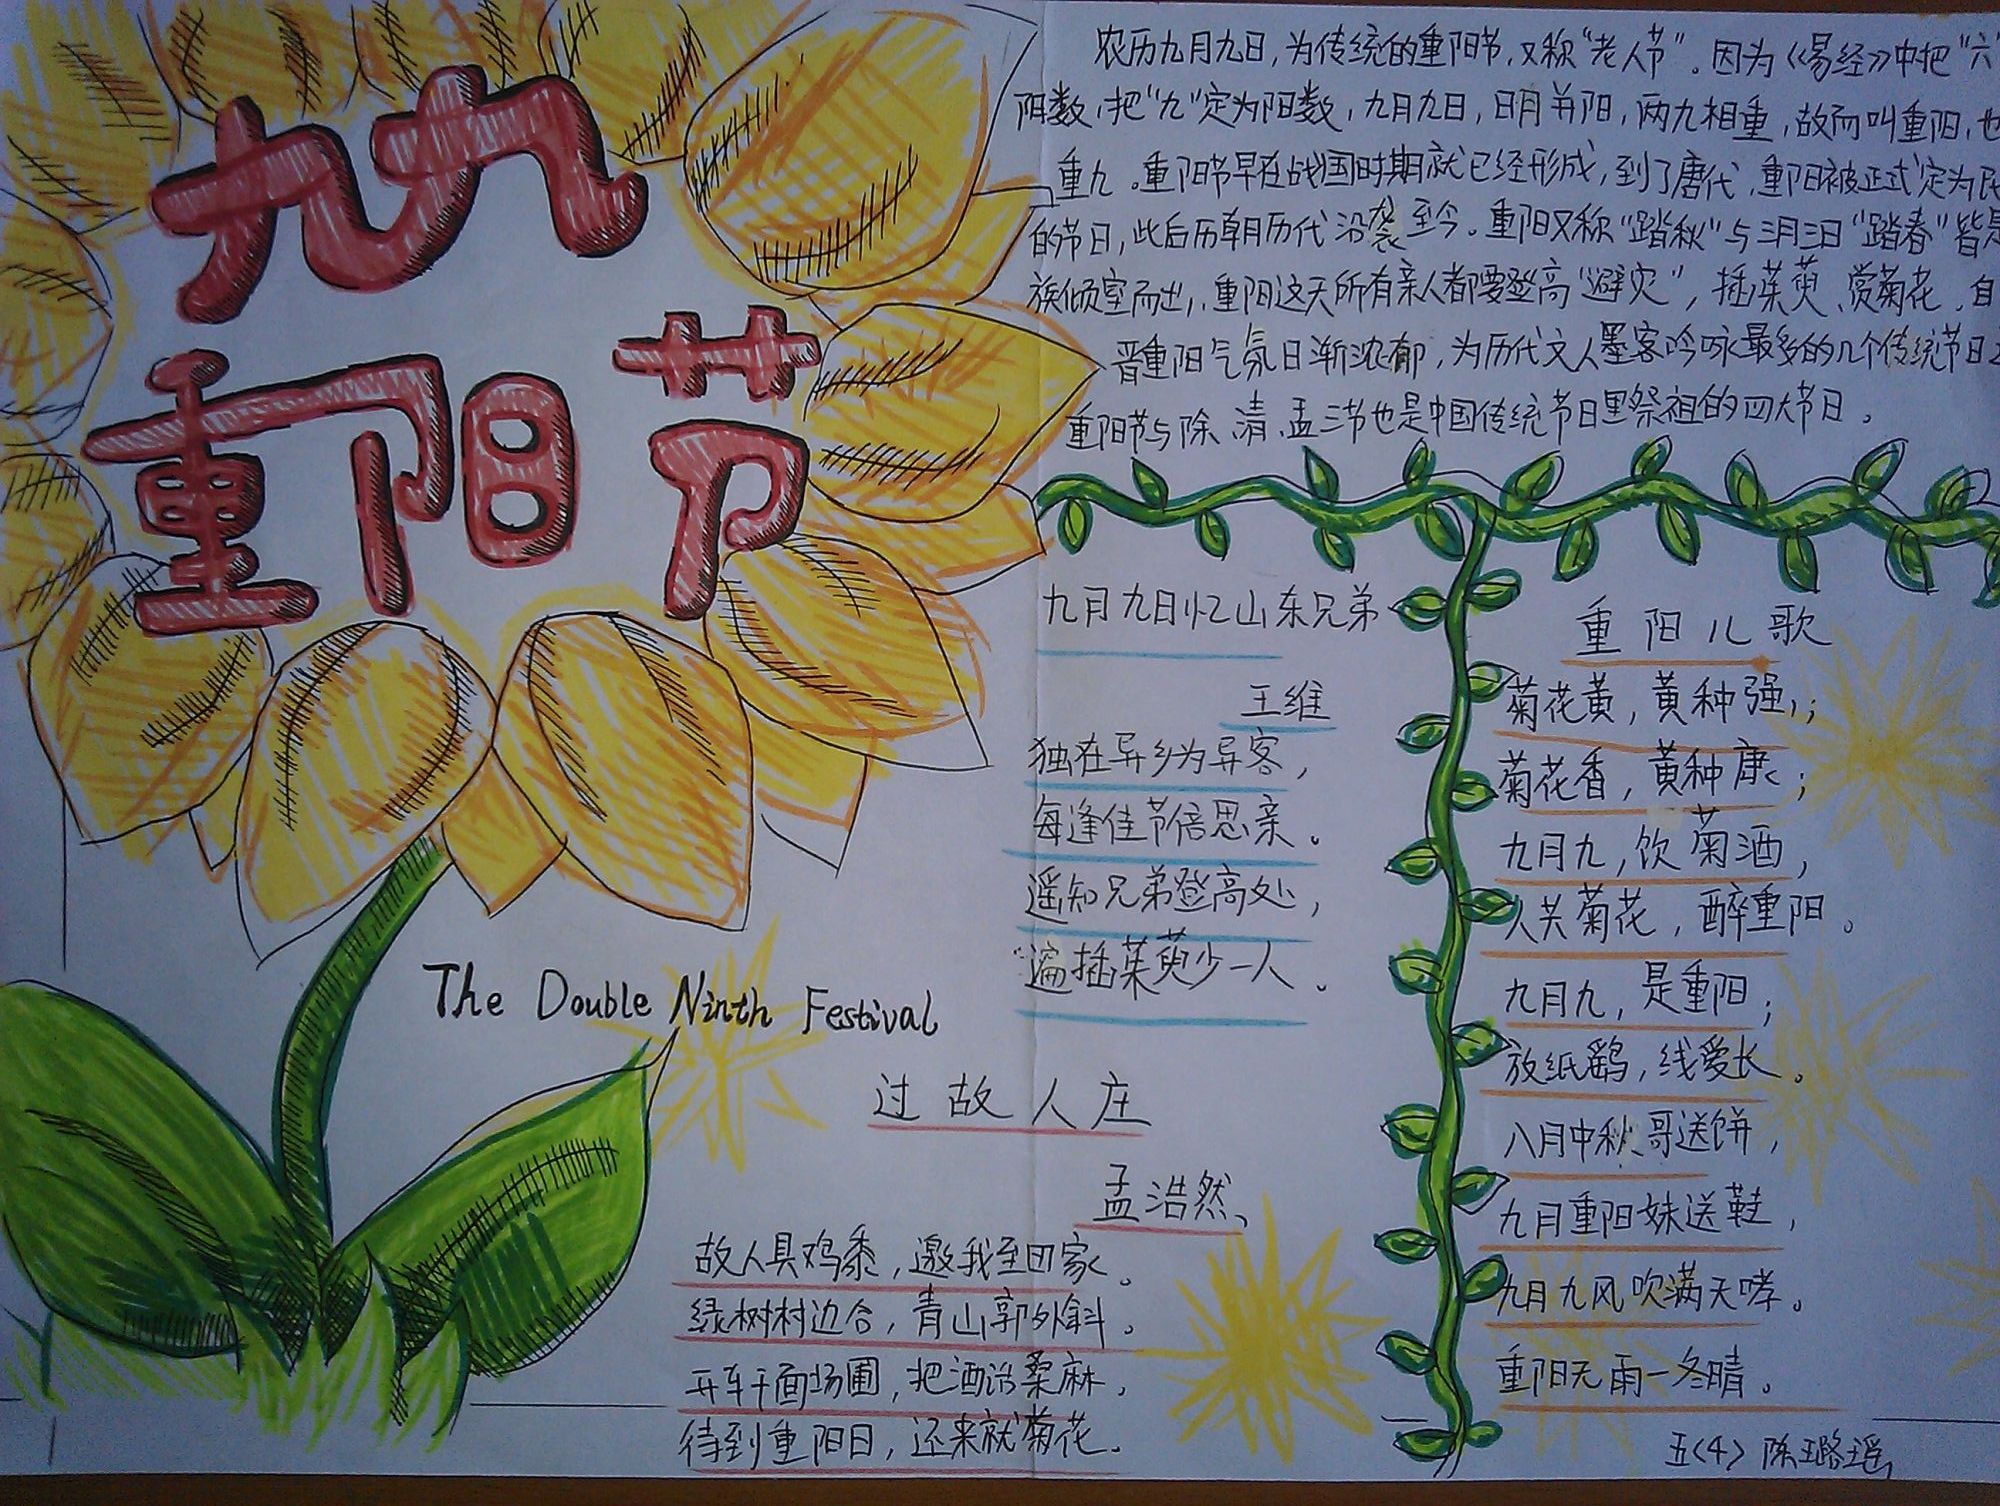 九九
重阳节
农历九月九日，为传统的重阳节，又称“老人节”。因为《易经》中把“六”
阳数，把“九”定为阳数，九月九日，日月并阳，两九相重，故而叫重阳，也
重九。重阳节早在战国时期就已经形成，到了唐代，重阳被正式定为民
的节日，此后历朝历代沿袭至今。重阳又称“踏秋”与三月三日“踏春”皆是
族倾室而出，重阳这天所有亲人都要登高“避灾”，插茱萸、赏菊花。自
晋重阳气氛日渐浓郁，为历代文人墨客吟咏最多的几个传统节日之
重阳节与除、清、盂三节也是中国传统节日里祭祖的四大节日。
九月九日忆山东兄弟
王维
独在异乡为异客，
每逢佳节倍思亲。
遥知兄弟登高处，
遍插茱萸少一人。
The Double Ninth Festival
过故人庄
孟浩然
故人具鸡黍，邀我至田家。
绿树村边合，青山郭外斜。
开车干面场圃，把酒话桑麻。
待到重阳日，还来就菊花。
重阳儿歌
菊花黄，黄种强；
菊花香，黄种康；
九月九，饮菊酒，
人共菊花，醉重阳。
九月九，是重阳；
放纸鹞，线爱长。
八月中秋哥送饼，
九月重阳妹送鞋，
九月九风吹满天哮。
重阳无雨一冬晴。
五（4）陈璐瑶